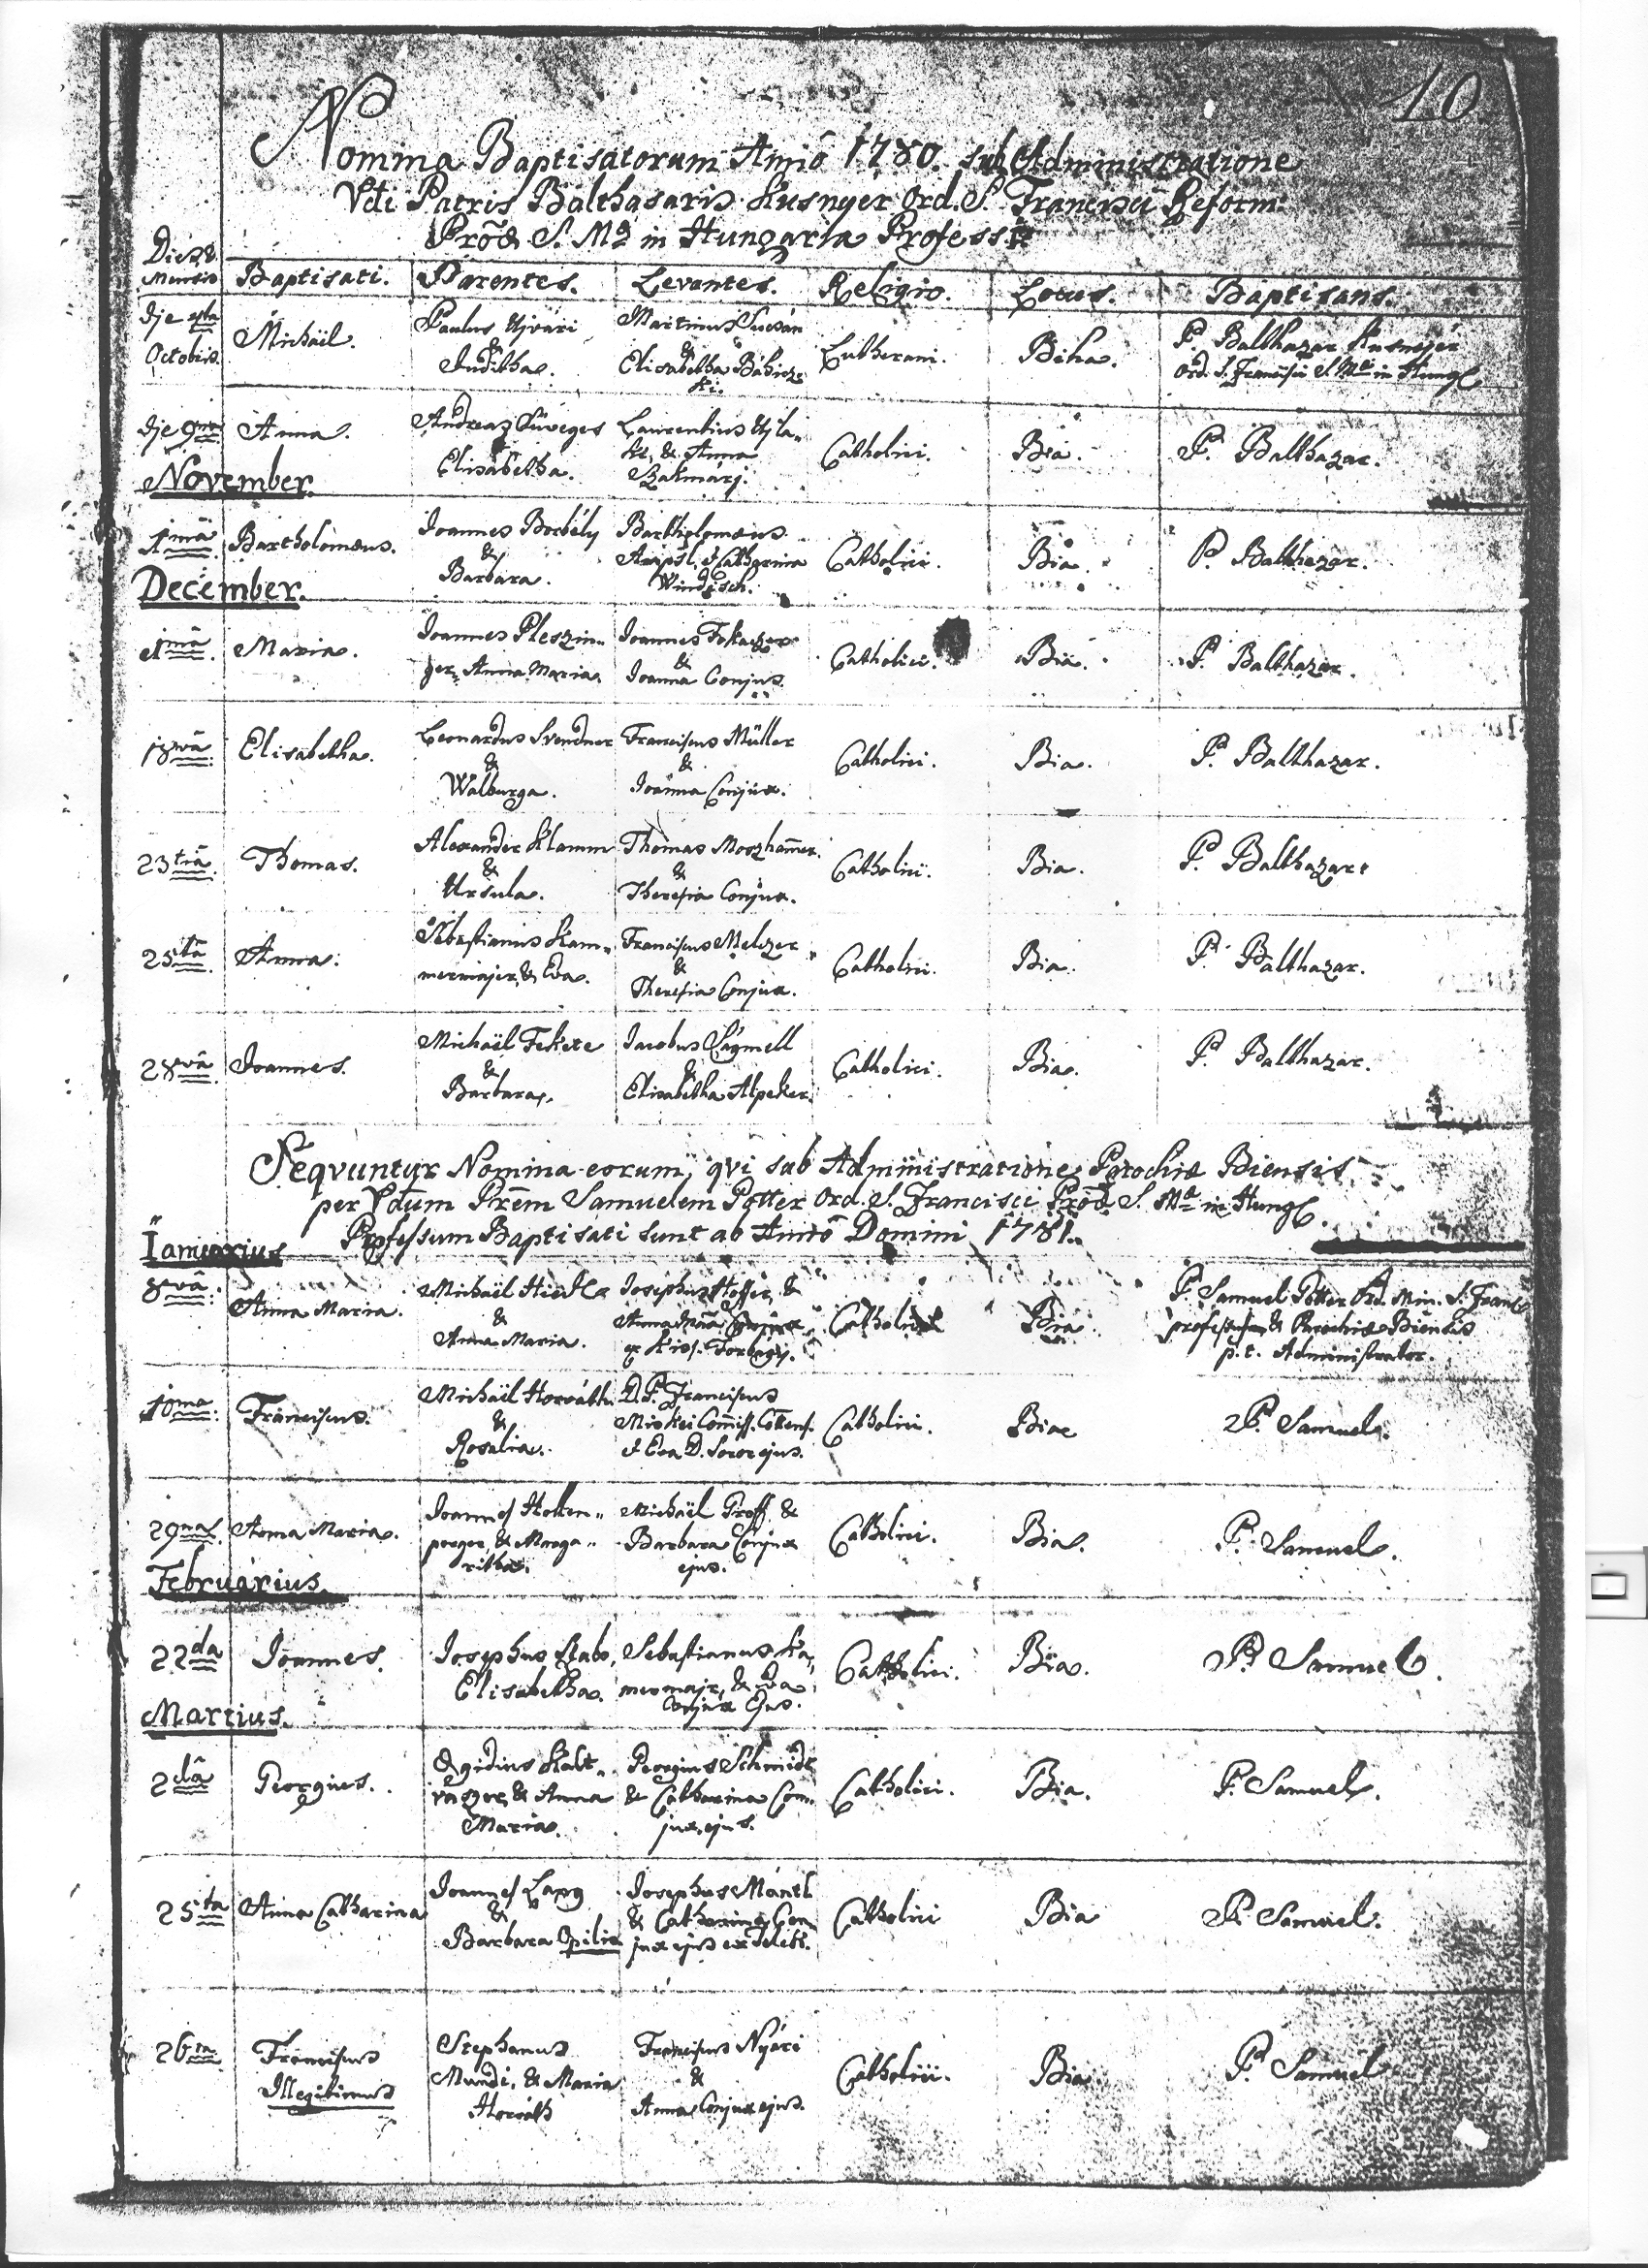 10.
Nomina Baptisatorum Anno 1780. sub Administratione
Vdi Patris Balthasaris Kusnyer Ord. S. Francisci Reform:
Prov. S. Mae in Hungaria Professi
Dies &
Mensis Baptisati. Parentes. Levantes. Religio. Locus. Baptisans.
Die
Octobris. Michäel. Paulus Ujvári & Juditha. Martinus & Elisabetha Lutherani. Biha. P. Balthazar Kusnyér
Ord. S. Francisci S. Mae in Hung.
Die 9na Anna. Andreas Süveges & Elisabetha. Laurentius Ujla„
ki, & Anna
Szakmárj. Catholici. Bia. P. Balthazar.
November.
1mâ Bartholomæus. Joannes Borbély & Barbara. Bartholomæus
& Catharina
Windisch. Catholici. Bia. P. Balthazar.
December.
1mâ Maria. Joannes Pleszin„
ger, Anna Maria. Joannes & Joanna Conjux. Catholici. Bia. P. Balthazar.
18vâ Elisabetha. Leonardus & Walburga. Franciscus Müller & Joanna Conjux. Catholici. Bia. P. Balthazar.
23tiâ Thomas. Alexander Klamm & Ursula. Thomas & Theresia Conjux. Catholici. Bia. P. Balthazar.
25tâ Anna. Sebastianus Kam„
mermajer, & Eva. Franciscus Melczer & Theresia Conjux. Catholici. Bia. P. Balthazar.
28vâ Joannes. Michäel Fekete & Barbara. Jacobus & Elisabetha Alpeker. Catholici. Bia. P. Balthazar.
Seqvuntur Nomina eorum, qvi sub Administratione Parochiæ Biensis
per Vdum Prem Samuelem Potter Ord. S. Francisci Prov. S. Mae in Hung.
Professum Baptisati sunt ab Anno Domini 1781.
Januarius
8vâ Anna Maria. Michäel & Anna Maria. Josephus Hoffer, &
Anna Maria Conjux
ex Torbagy. Catholici Bia P. Samuel Potter Ord. Min. S. Franc.
professus, & Parochiæ Biensis
p. t. Administrator.
10ma Franciscus. Michäel Horváth & Rosalia. D. P. Franciscus
& Eva D. Soror ejus. Catholici. Bia P. Samuel.
29na Anna Maria. Joannes Hollen„
& Marga„
ritha. Michäel Groff &
Barbara Conjux
ejus. Catholici. Bia. P. Samuel.
Februarius.
22da Joannes. Josephus
Elisabetha. Sebastianus Ka„
mermajr, & Eva
Conjux Ejus. Catholici. Bia. P. Samuel.
Martius.
2dâ Georgius. Ægidius Kalt„
& Anna
Maria. Georgius Schmidt
& Catharina Con„
jux ejus. Catholici. Bia. P. Samuel.
25ta Anna Catharina Joannes Lang & Barbara Opilio Josephus Mantl
& Catharina Con„
jux ejus ex Catholici Bia P. Samuel.
26ta Franciscus
Illegitimus Stephanus
Mundi, & Maria
Horváth Franciscus Nyári & Anna Conjux ejus. Catholici. Bia P. Samuel